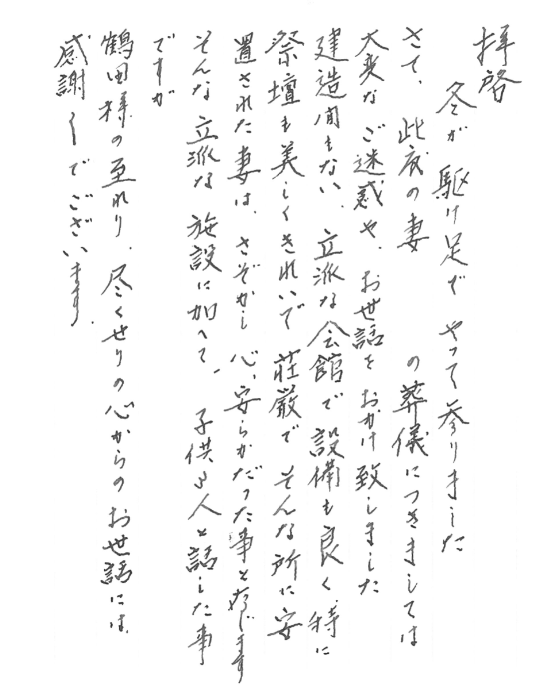 拝啓
冬が駆け足でやって参りました
さて、此度の妻　　の葬儀につきましては
大変なご迷惑や、お世話をおかけ致しました
建造間もない、立派な会館で設備も良く、特に
祭壇も美しくきれいで荘厳でそんな所に安
置された妻は、さぞかし心、安らかだった事と存じます
そんな立派な施設に加へて、子供3人と話した事
ですが
鶴田様の至れり、尽くせりの心からのお世話には、
感謝〳〵でございます。